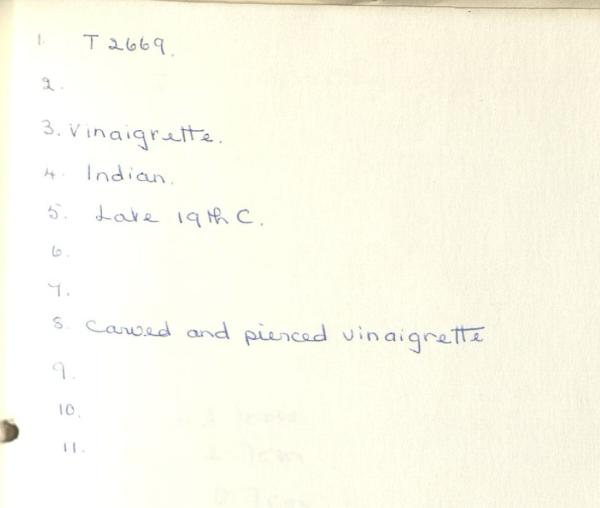 1. T 2669.
2.
3. Vinaigrette.
4. Indian.
5. Late 19th C.
6.
7.
8. Carved and pierced vinaigrette
9.
10.
11.